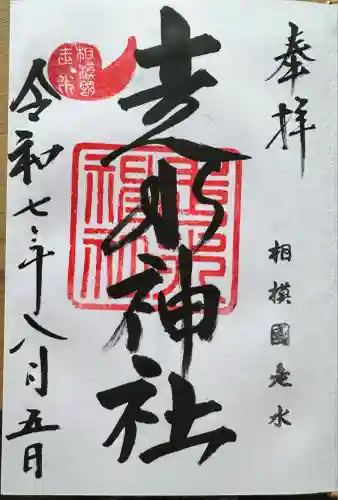 奉拝
相模國走水
走水神社
令和七年八月五日
相模國
走水
走水
神社